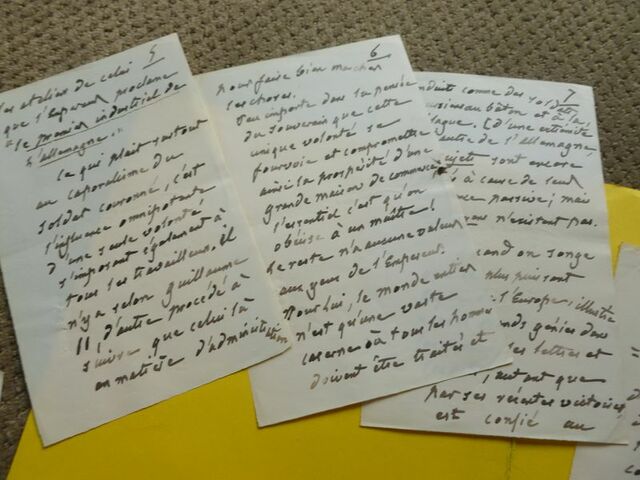 5
les atelier de celui
que l'Empereur proclame
"le premier industriel de
l'allemagne"
Ce qui plait surtout
au caporalisme du
soldat couronné, c'est
l'influence omnipotente
d'une seule volonté
s'imposant également à
tous les travailleurs. Il
n'y a selon guillaume
II, d'autre procédé à
suivre que celui là
en matière d'administration
6
pour faire bien marcher
les choses.
Peu importe dans la pensée
du souverain que cette
unique volonté se
fourvoie et compromette
ainsi la prospérité d'une
grande maison de commerce
l'essentiel c'est qu'on
obéisse à un maître!
Le reste n'a aucune valeur
aux yeux de l'Empereur.
Pour lui, le monde entier
n'est qu'une vaste
caserne où tous les hommes
doivent être traités et
7
conduit comme des soldats
bâton et à la
[d'une extrémité
autre de l'allemagne,
sujets sont encore
à cause de leur
passive; mais
n'existent pas.
quand on songe
plus puissant
l'Europe, illustre
grands génies dans
les lettres et
, autant que
par ses récentes victoires
est confié au